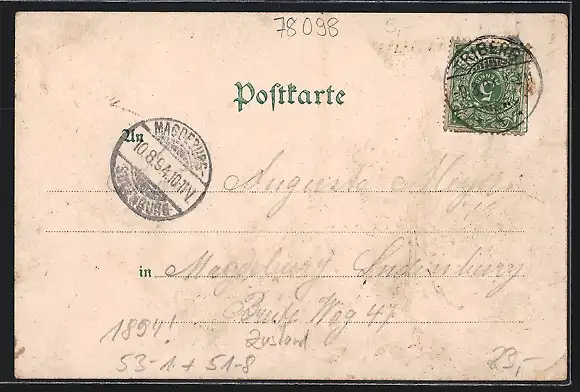 78098
TRIBERG
5
Postkarte
An
MAGDEBURG-
10.8.94.10-11V.
SUDENBURG
Auguste Meyer
in Magdeburg Sudenburg
Breite Weg 47
1894! Zustand
S3-1+S1-8
23,-